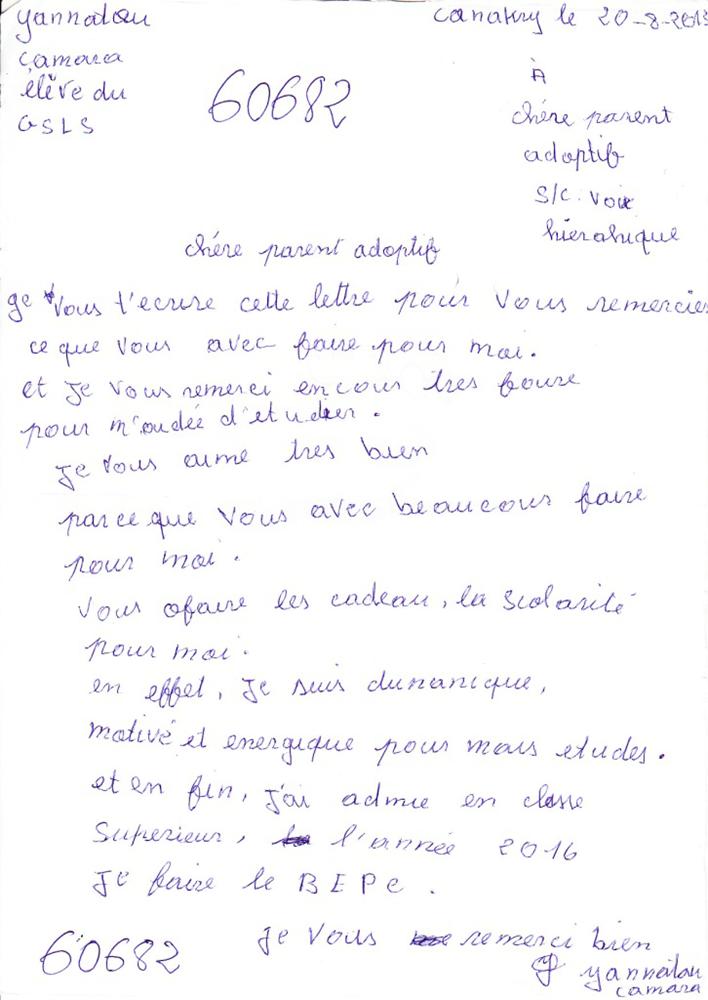 yannatou
camara
élève du
GSLS
60682
Canakry le 20-8-201
À
chére parent
adoptif
s/c. voie
hierahique
chére parent adoptif
ge vous t'ecrire cette lettre pour vous remercier
ce que vous avec faire pour moi.
et je vous remerci encour tres foure
pour m'aidée d'etudier.
je vous aime tres bien
parceque vous avec beaucour faire
pour moi.
vous ofaire les cadeau, la scolarité
pour moi.
en effet, je suis dunanique,
motivé et energique pour mais etudes.
et en fin, j'ai admie en classe
superieur, l'année 2016
je faire le BEPC.
je vous remerci bien
60682
yannatou
camara